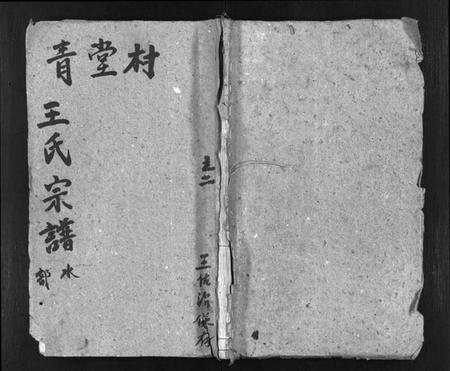 青堂村
王氏宗譜
水部
之二
王佑治保存